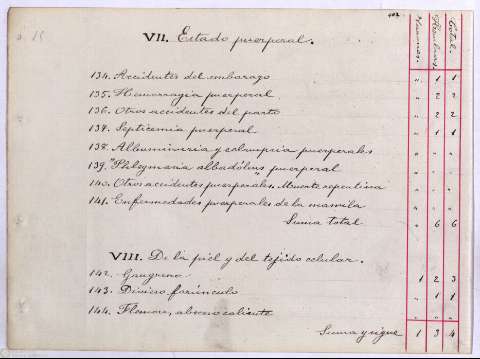 402
Varones. Hembras. Total.
VII. Estado puerperal.
134. Accidentes del embarazo " 1 1
135. Hemorragia puerperal " 2 2
136. Otros accidentes del parto " 2 2
137. Septicemia puerperal " 1 1
138. Albuminuria y eclampsia puerperales " " "
139. "Phlegmaria albadólens" puerperal " " "
140. Otros accidentes puerperales. Muerte repentina " " "
141. Enfermedades puerperales de la mamila " " "
Suma total " 6 6
VIII. De la piel y del tejido celular.
142. Gangrena 1 2 3
143. Divieso forúnculo " 1 1
144. Flemón, absceso caliente " " "
Suma y sigue 1 3 4